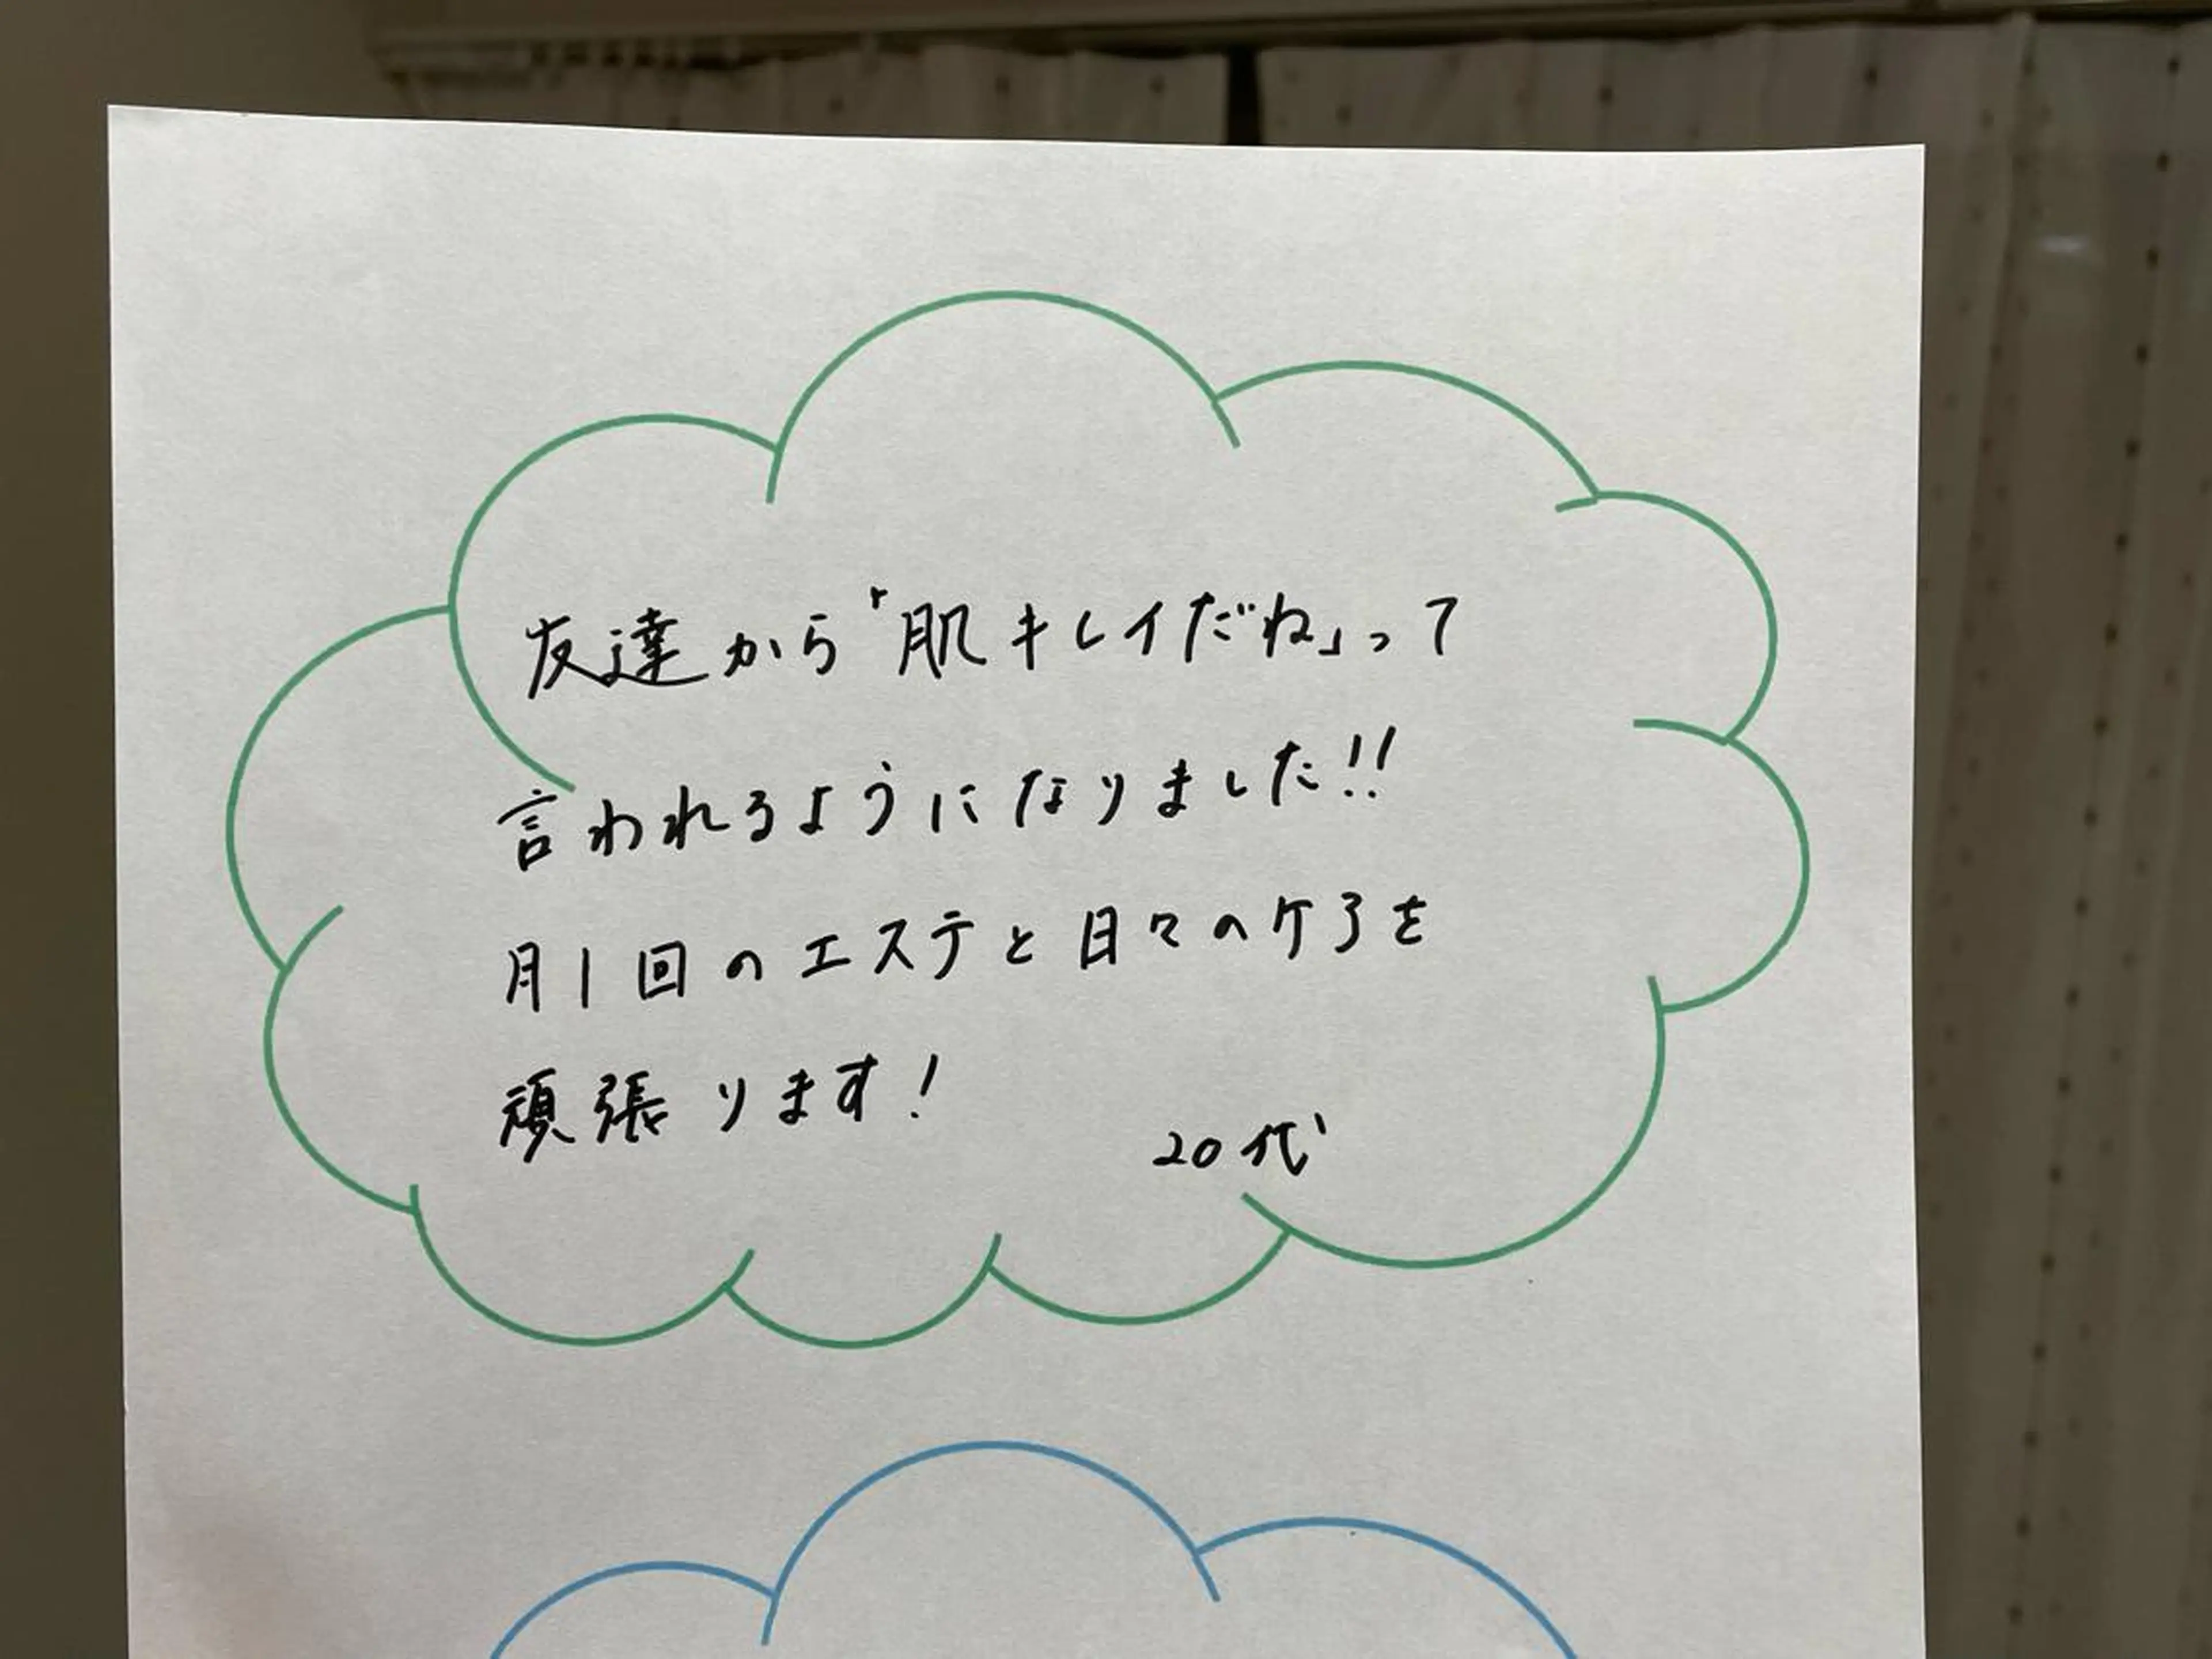 友達から「肌キレイだね」って
言われるようになりました!!
月1回のエステと日々のケアを
頑張ります!
20代